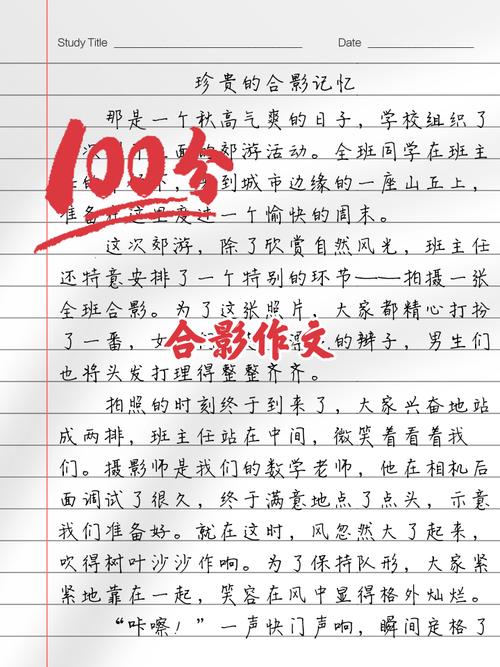 Study Title
Date
珍贵的合影记忆
那是一个秋高气爽的日子，学校组织了
的郊游活动。全班同学在班主
到城市边缘的一座山丘上，
准备在这里度过一个愉快的周末。
100分
这次郊游，除了欣赏自然风光，班主任
还特意安排了一个特别的环节——拍摄一张
全班合影。为了这张照片，大家都精心打扮
了一番，女
的辫子，男生们
合影作文
也将头发打理得整整齐齐。
拍照的时刻终于到来了，大家兴奋地站
成两排，班主任站在中间，微笑着看着我
们。摄影师是我们的数学老师，他在相机后
面调试了很久，终于满意地点了点头，示意
我们准备好。就在这时，风忽然大了起来，
吹得树叶沙沙作响。为了保持队形，大家紧
紧地靠在一起，笑容在风中显得格外灿烂。
“咔嚓！”一声快门声响，瞬间定格了